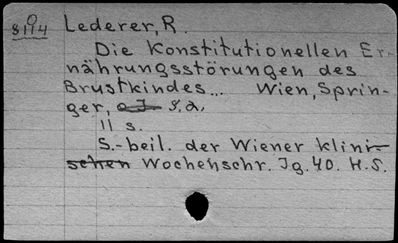 8194 Lederer, R.
Die Konstitutionellen Er-
nährungsstörungen des
Brustkindes... Wien, Sprin-
ger, o J s.a.
11 s.
S.-beil. der Wiener klini-
schen Wochenschr. Jg. 40. H.5.